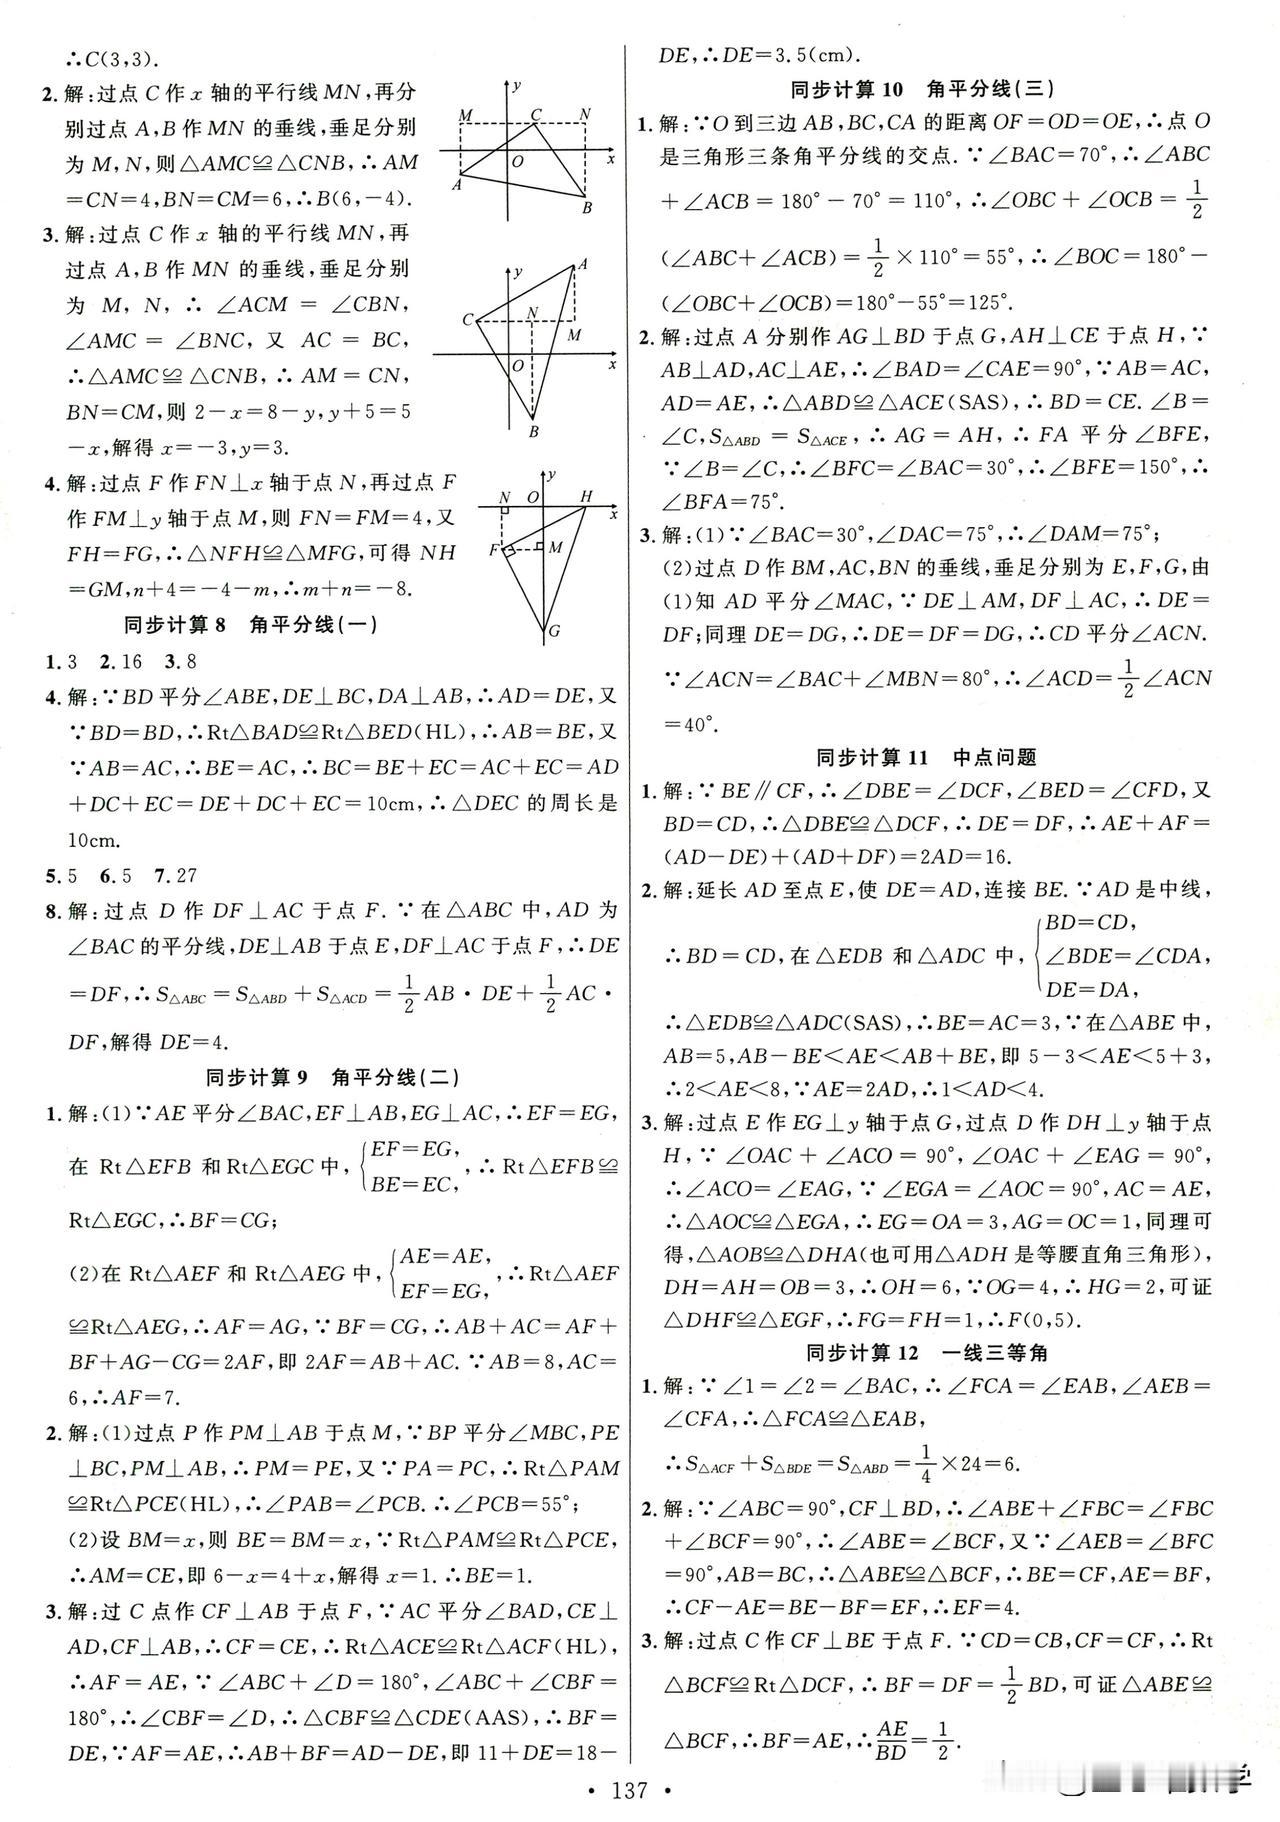 ∴C(3,3).
2.解:过点C作x轴的平行线MN,再分
别过点A,B作MN的垂线,垂足分别
为M,N,则△AMC≌△CNB,∴AM
=CN=4,BN=CM=6,∴B(6,-4).
y
M
C
N
O
x
A
B
3.解:过点C作x轴的平行线MN,再
过点A,B作MN的垂线,垂足分别
为M,N,∴∠ACM=∠CBN,
∠AMC=∠BNC,又AC=BC,
∴△AMC≌△CNB,∴AM=CN,
BN=CM,则2-x=8-y,y+5=5
-x,解得x=-3,y=3.
y
A
C
N
M
O
x
B
4.解:过点F作FN⊥x轴于点N,再过点F
作FM⊥y轴于点M,则FN=FM=4,又
FH=FG,∴△NFH≌△MFG,可得NH
=GM,n+4=-4-m,∴m+n=-8.
y
N
O
H
x
F
M
G
同步计算8 角平分线(一)
1.3 2.16 3.8
4.解:∵BD平分∠ABE,DE⊥BC,DA⊥AB,∴AD=DE,又
∵BD=BD,∴Rt△BAD≌Rt△BED(HL),∴AB=BE,又
∵AB=AC,∴BE=AC,∴BC=BE+EC=AC+EC=AD
+DC+EC=DE+DC+EC=10cm,∴△DEC的周长是
10cm.
5.5 6.5 7.27
8.解:过点D作DF⊥AC于点F.∵在△ABC中,AD为
∠BAC的平分线,DE⊥AB于点E,DF⊥AC于点F,∴DE
=DF,∴S△ABC=S△ABD+S△ACD=1/2AB·DE+1/2AC·
DF,解得DE=4.
同步计算9 角平分线(二)
1.解:(1)∵AE平分∠BAC,EF⊥AB,EG⊥AC,∴EF=EG,
在Rt△EFB和Rt△EGC中,{EF=EG, BE=EC,,∴Rt△EFB≌
Rt△EGC,∴BF=CG;
(2)在Rt△AEF和Rt△AEG中,{AE=AE, EF=EG,,∴Rt△AEF
≌Rt△AEG,∴AF=AG,∵BF=CG,∴AB+AC=AF+
BF+AG-CG=2AF,即2AF=AB+AC.∵AB=8,AC=
6,∴AF=7.
2.解:(1)过点P作PM⊥AB于点M,∵BP平分∠MBC,PE
⊥BC,PM⊥AB,∴PM=PE,又∵PA=PC,∴Rt△PAM
≌Rt△PCE(HL),∴∠PAB=∠PCB.∴∠PCB=55°;
(2)设BM=x,则BE=BM=x,∵Rt△PAM≌Rt△PCE,
∴AM=CE,即6-x=4+x,解得x=1.∴BE=1.
3.解:过C点作CF⊥AB于点F,∵AC平分∠BAD,CE⊥
AD,CF⊥AB,∴CF=CE,∴Rt△ACE≌Rt△ACF(HL),
∴AF=AE,∵∠ABC+∠D=180°,∠ABC+∠CBF=
180°,∴∠CBF=∠D,∴△CBF≌△CDE(AAS),∴BF=
DE,∵AF=AE,∴AB+BF=AD-DE,即11+DE=18-
DE,∴DE=3.5(cm).
同步计算10 角平分线(三)
1.解:∵O到三边AB,BC,CA的距离OF=OD=OE,∴点O
是三角形三条角平分线的交点.∵∠BAC=70°,∴∠ABC
+∠ACB=180°-70°=110°,∴∠OBC+∠OCB=1/2
(∠ABC+∠ACB)=1/2×110°=55°,∴∠BOC=180°-
(∠OBC+∠OCB)=180°-55°=125°.
2.解:过点A分别作AG⊥BD于点G,AH⊥CE于点H,∵
AB⊥AD,AC⊥AE,∴∠BAD=∠CAE=90°,∵AB=AC,
AD=AE,∴△ABD≌△ACE(SAS),∴BD=CE.∠B=
∠C,S△ABD=S△ACE,∴AG=AH,∴FA平分∠BFE,
∵∠B=∠C,∴∠BFC=∠BAC=30°,∴∠BFE=150°,∴
∠BFA=75°.
3.解:(1)∵∠BAC=30°,∠DAC=75°,∴∠DAM=75°;
(2)过点D作BM,AC,BN的垂线,垂足分别为E,F,G,由
(1)知AD平分∠MAC,∵DE⊥AM,DF⊥AC,∴DE=
DF;同理DE=DG,∴DE=DF=DG,∴CD平分∠ACN.
∵∠ACN=∠BAC+∠MBN=80°,∴∠ACD=1/2∠ACN
=40°.
同步计算11 中点问题
1.解:∵BE∥CF,∴∠DBE=∠DCF,∠BED=∠CFD,又
BD=CD,∴△DBE≌△DCF,∴DE=DF,∴AE+AF=
(AD-DE)+(AD+DF)=2AD=16.
2.解:延长AD至点E,使DE=AD,连接BE.∵AD是中线,
∴BD=CD,在△EDB和△ADC中,{BD=CD, ∠BDE=∠CDA, DE=DA,
∴△EDB≌△ADC(SAS),∴BE=AC=3,∵在△ABE中,
AB=5,AB-BE<AE<AB+BE,即5-3<AE<5+3,
∴2<AE<8,∵AE=2AD,∴1<AD<4.
3.解:过点E作EG⊥y轴于点G,过点D作DH⊥y轴于点
H,∵∠OAC+∠ACO=90°,∠OAC+∠EAG=90°,
∴∠ACO=∠EAG,∵∠EGA=∠AOC=90°,AC=AE,
∴△AOC≌△EGA,∴EG=OA=3,AG=OC=1,同理可
得,△AOB≌△DHA(也可用△ADH是等腰直角三角形),
DH=AH=OB=3,∴OH=6,∵OG=4,∴HG=2,可证
△DHF≌△EGF,∴FG=FH=1,∴F(0,5).
同步计算12 一线三等角
1.解:∵∠1=∠2=∠BAC,∴∠FCA=∠EAB,∠AEB=
∠CFA,∴△FCA≌△EAB,
∴S△ACF+S△BDE=S△ABD=1/4×24=6.
2.解:∵∠ABC=90°,CF⊥BD,∴∠ABE+∠FBC=∠FBC
+∠BCF=90°,∴∠ABE=∠BCF,又∵∠AEB=∠BFC
=90°,AB=BC,∴△ABE≌△BCF,∴BE=CF,AE=BF,
∴CF-AE=BE-BF=EF,∴EF=4.
3.解:过点C作CF⊥BE于点F.∵CD=CB,CF=CF,∴Rt
△BCF≌Rt△DCF,∴BF=DF=1/2BD,可证△ABE≌
△BCF,∴BF=AE,∴AE/BD=1/2.
·137·